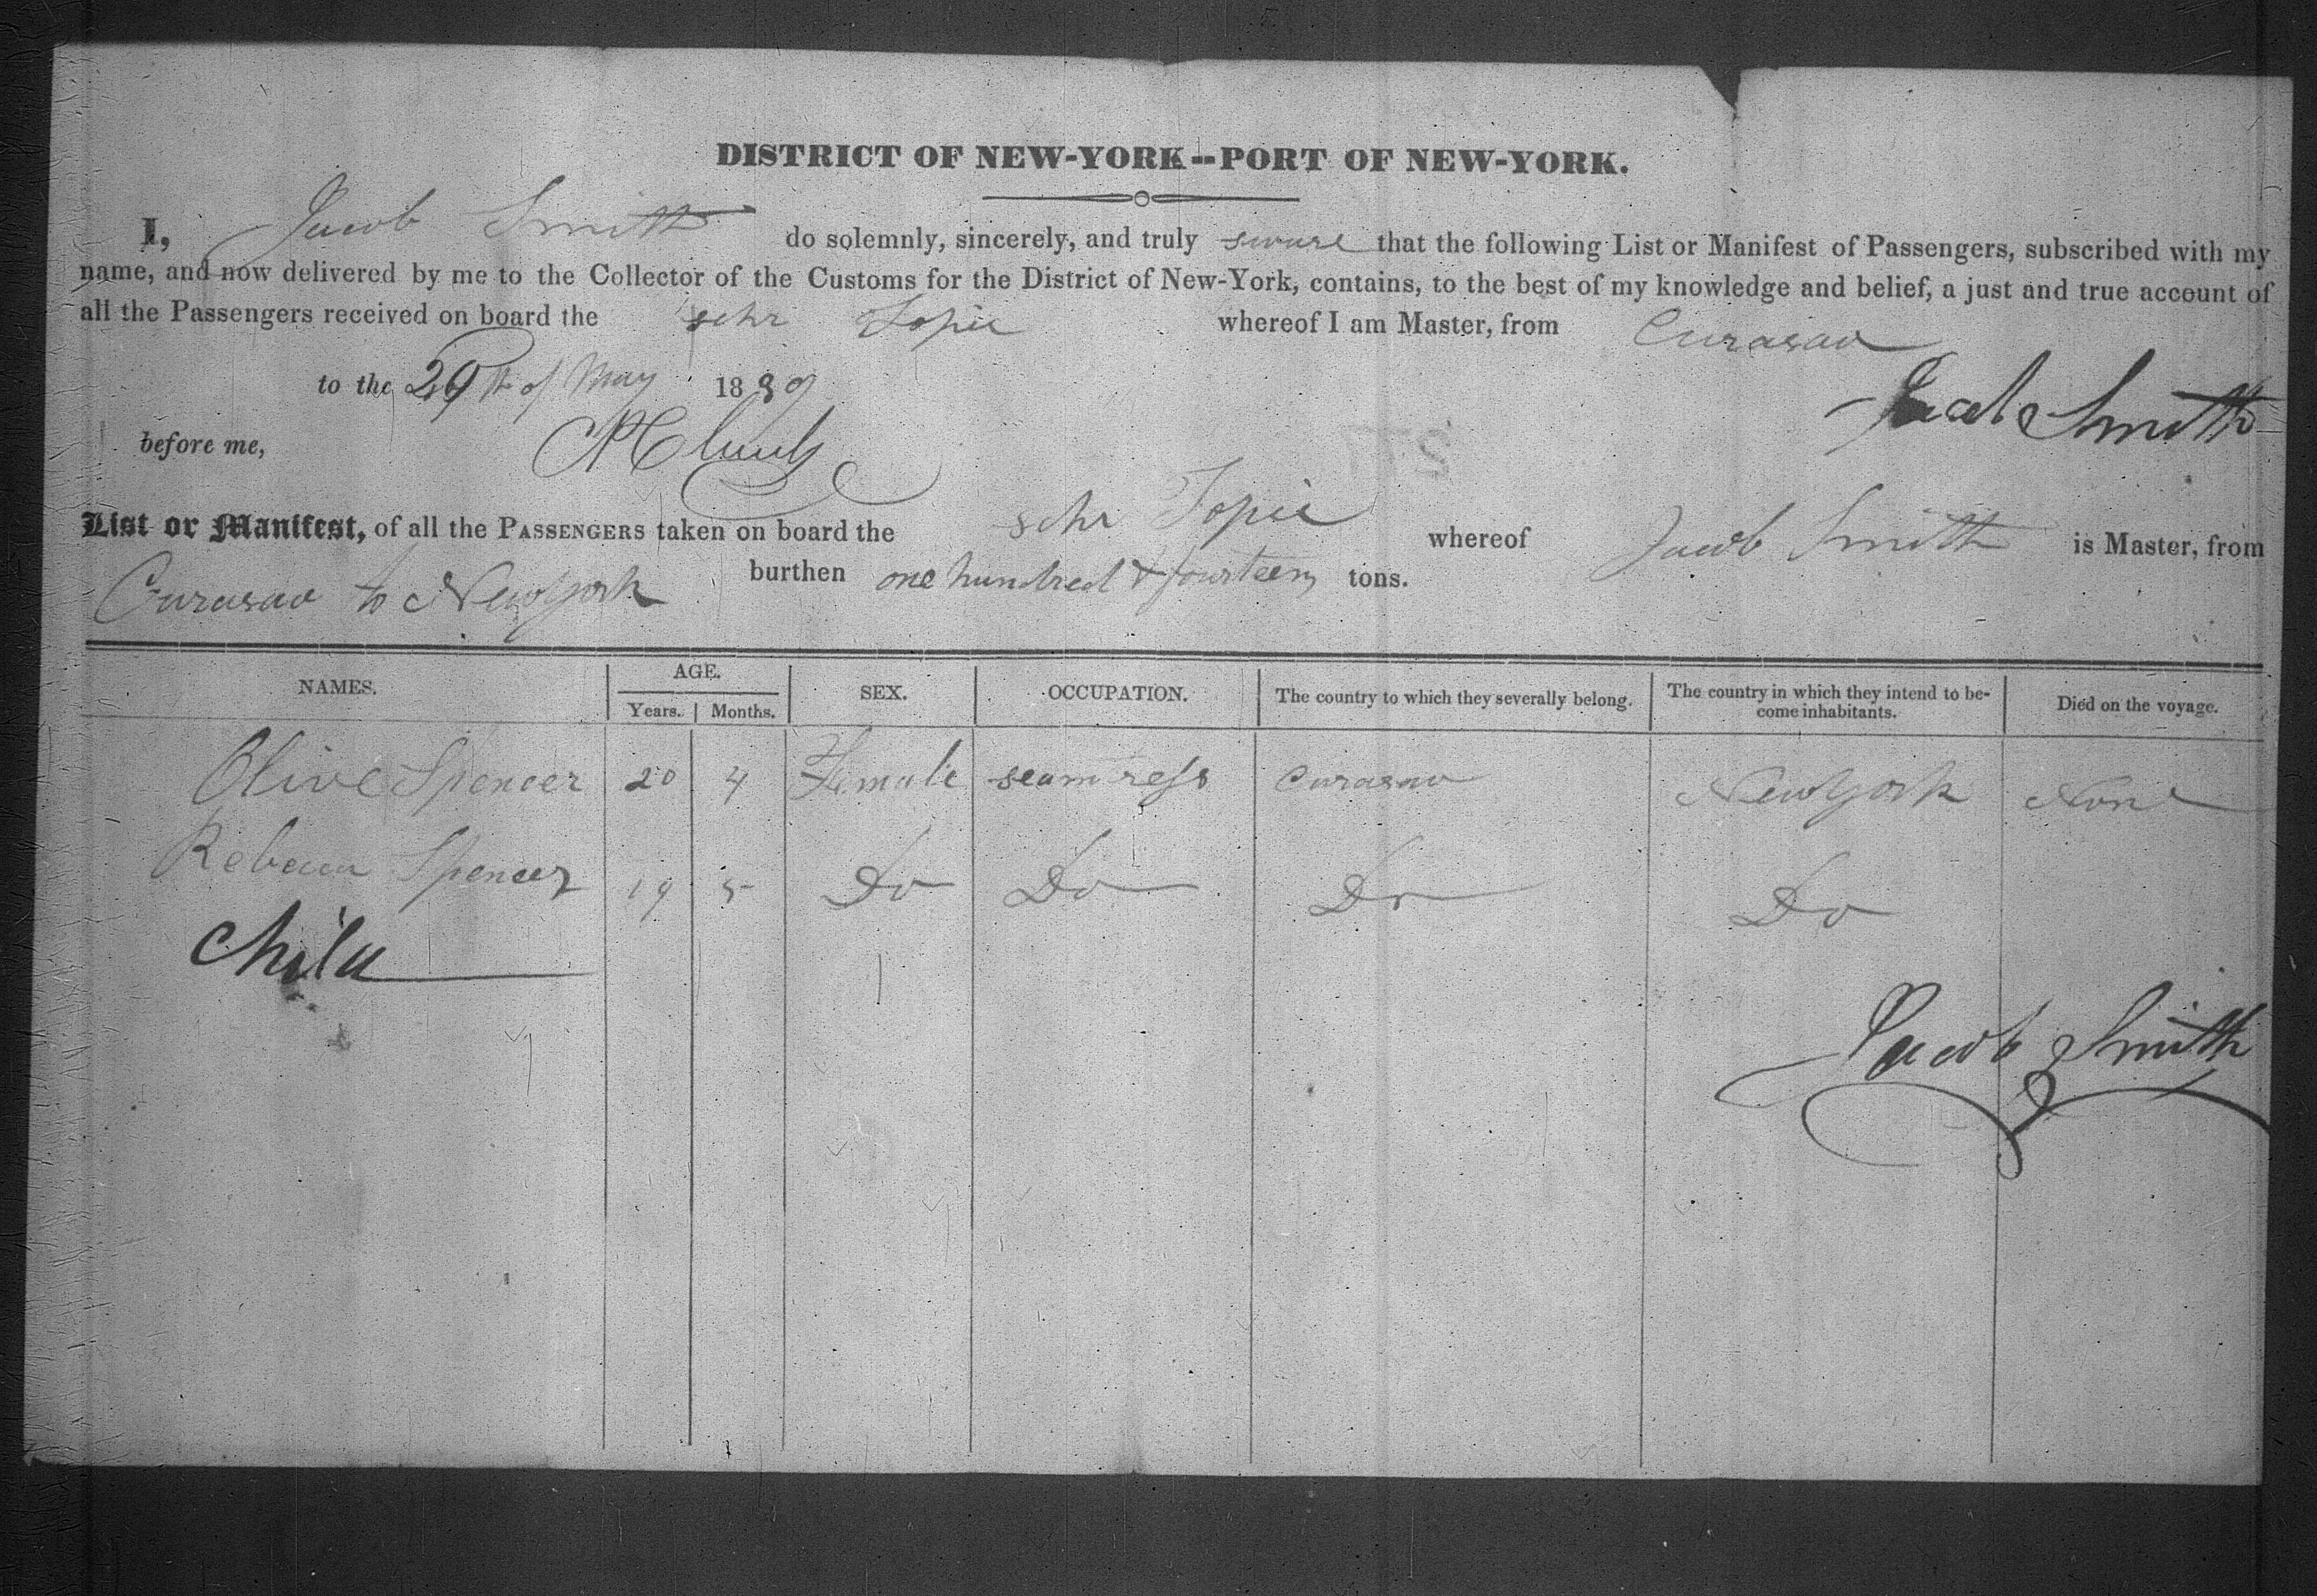 DISTRICT OF NEW-YORK--PORT OF NEW-YORK.
I, Jacob Smith do solemnly, sincerely, and truly sware that the following List or Manifest of Passengers, subscribed with my
name, and now delivered by me to the Collector of the Customs for the District of New-York, contains, to the best of my knowledge and belief, a just and true account of
all the Passengers received on board the schr Topic whereof I am Master, from Curasao
to the 29th of May 1839
Jacob Smith
before me,
List or Manifest, of all the PASSENGERS taken on board the schr Topic whereof Jacob Smith is Master, from
Curasao to New York burthen one hundred & fourteen tons.
NAMES. AGE. Years. Months. SEX. OCCUPATION. The country to which they severally belong. The country in which they intend to become inhabitants. Died on the voyage.
Olive Spencer 20 4 Female seamtress Curasao New York None
Rebecca Spencer 19 5 Do Do Do Do
Child
Jacob Smith